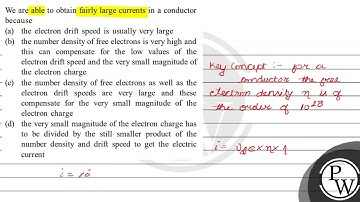 We are able to obtain fairly large currents in a conductor
because
(a) the electron drift speed is usually very large
(b) the number density of free electrons is very high and
this can compensate for the low values of the
electron drift speed and the very small magnitude of
the electron charge
(c) the number density of free electrons as well as the
electron drift speeds are very large and these
compensate for the very small magnitude of the
electron charge
(d) the very small magnitude of the electron charge has
to be divided by the still smaller product of the
number density and drift speed to get the electric
current
i = 10
Key Concept :- for a
conductor the free
electron density n is of
the order of 10
i =
PW